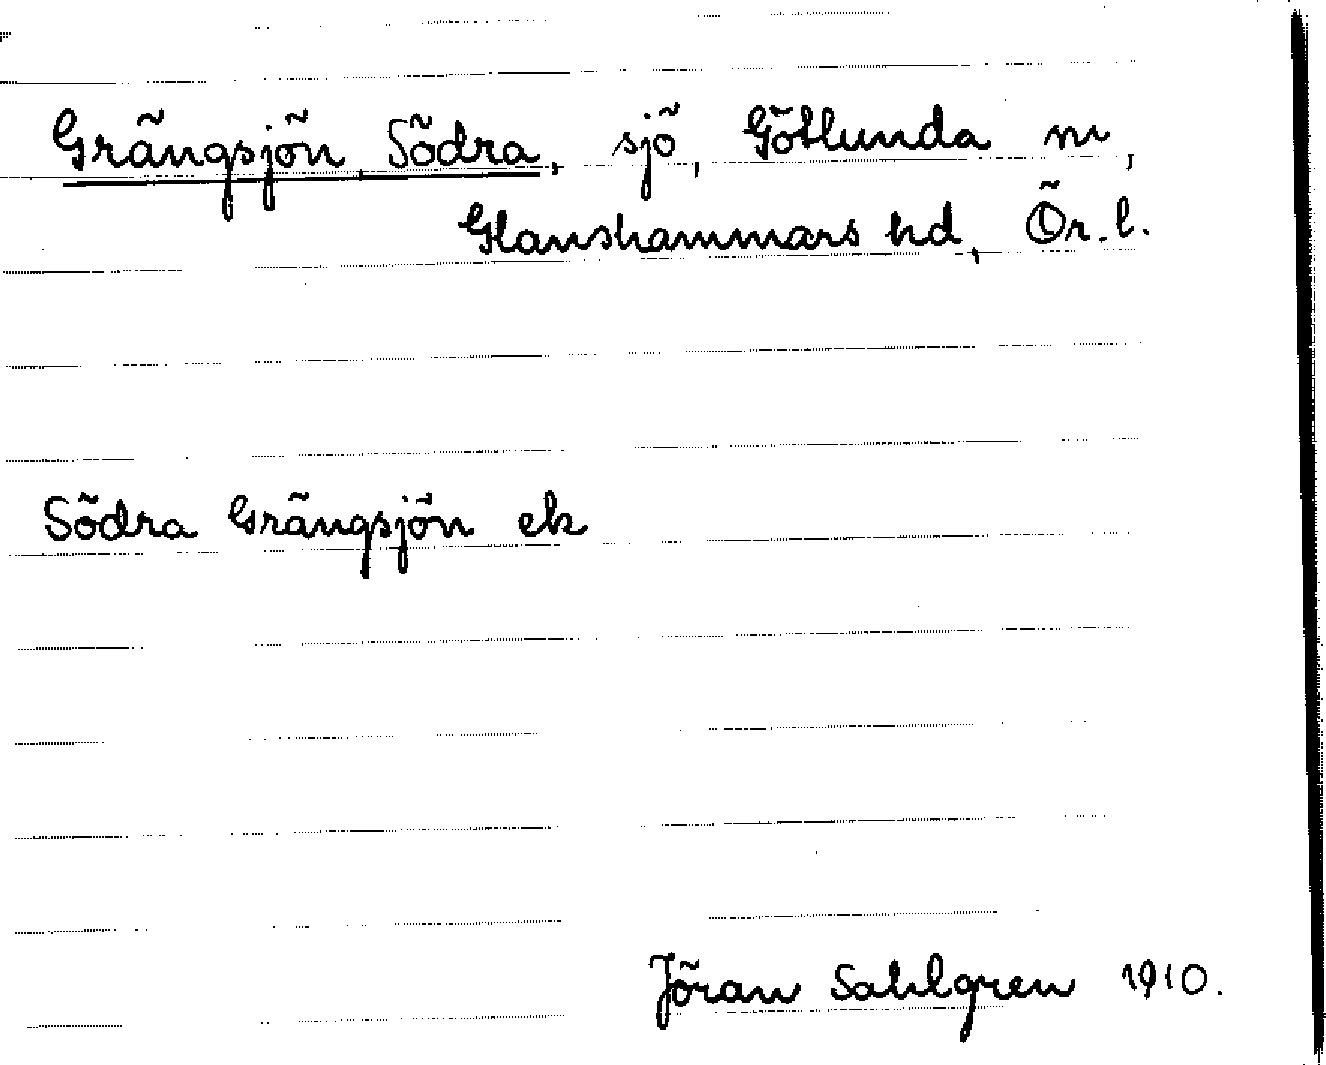 Grängsjön Södra, sjö, Götlunda sn,
Glanshammars hd, Ör. l.
Södra Grängsjön ek
Jöran Sahlgren 1910.